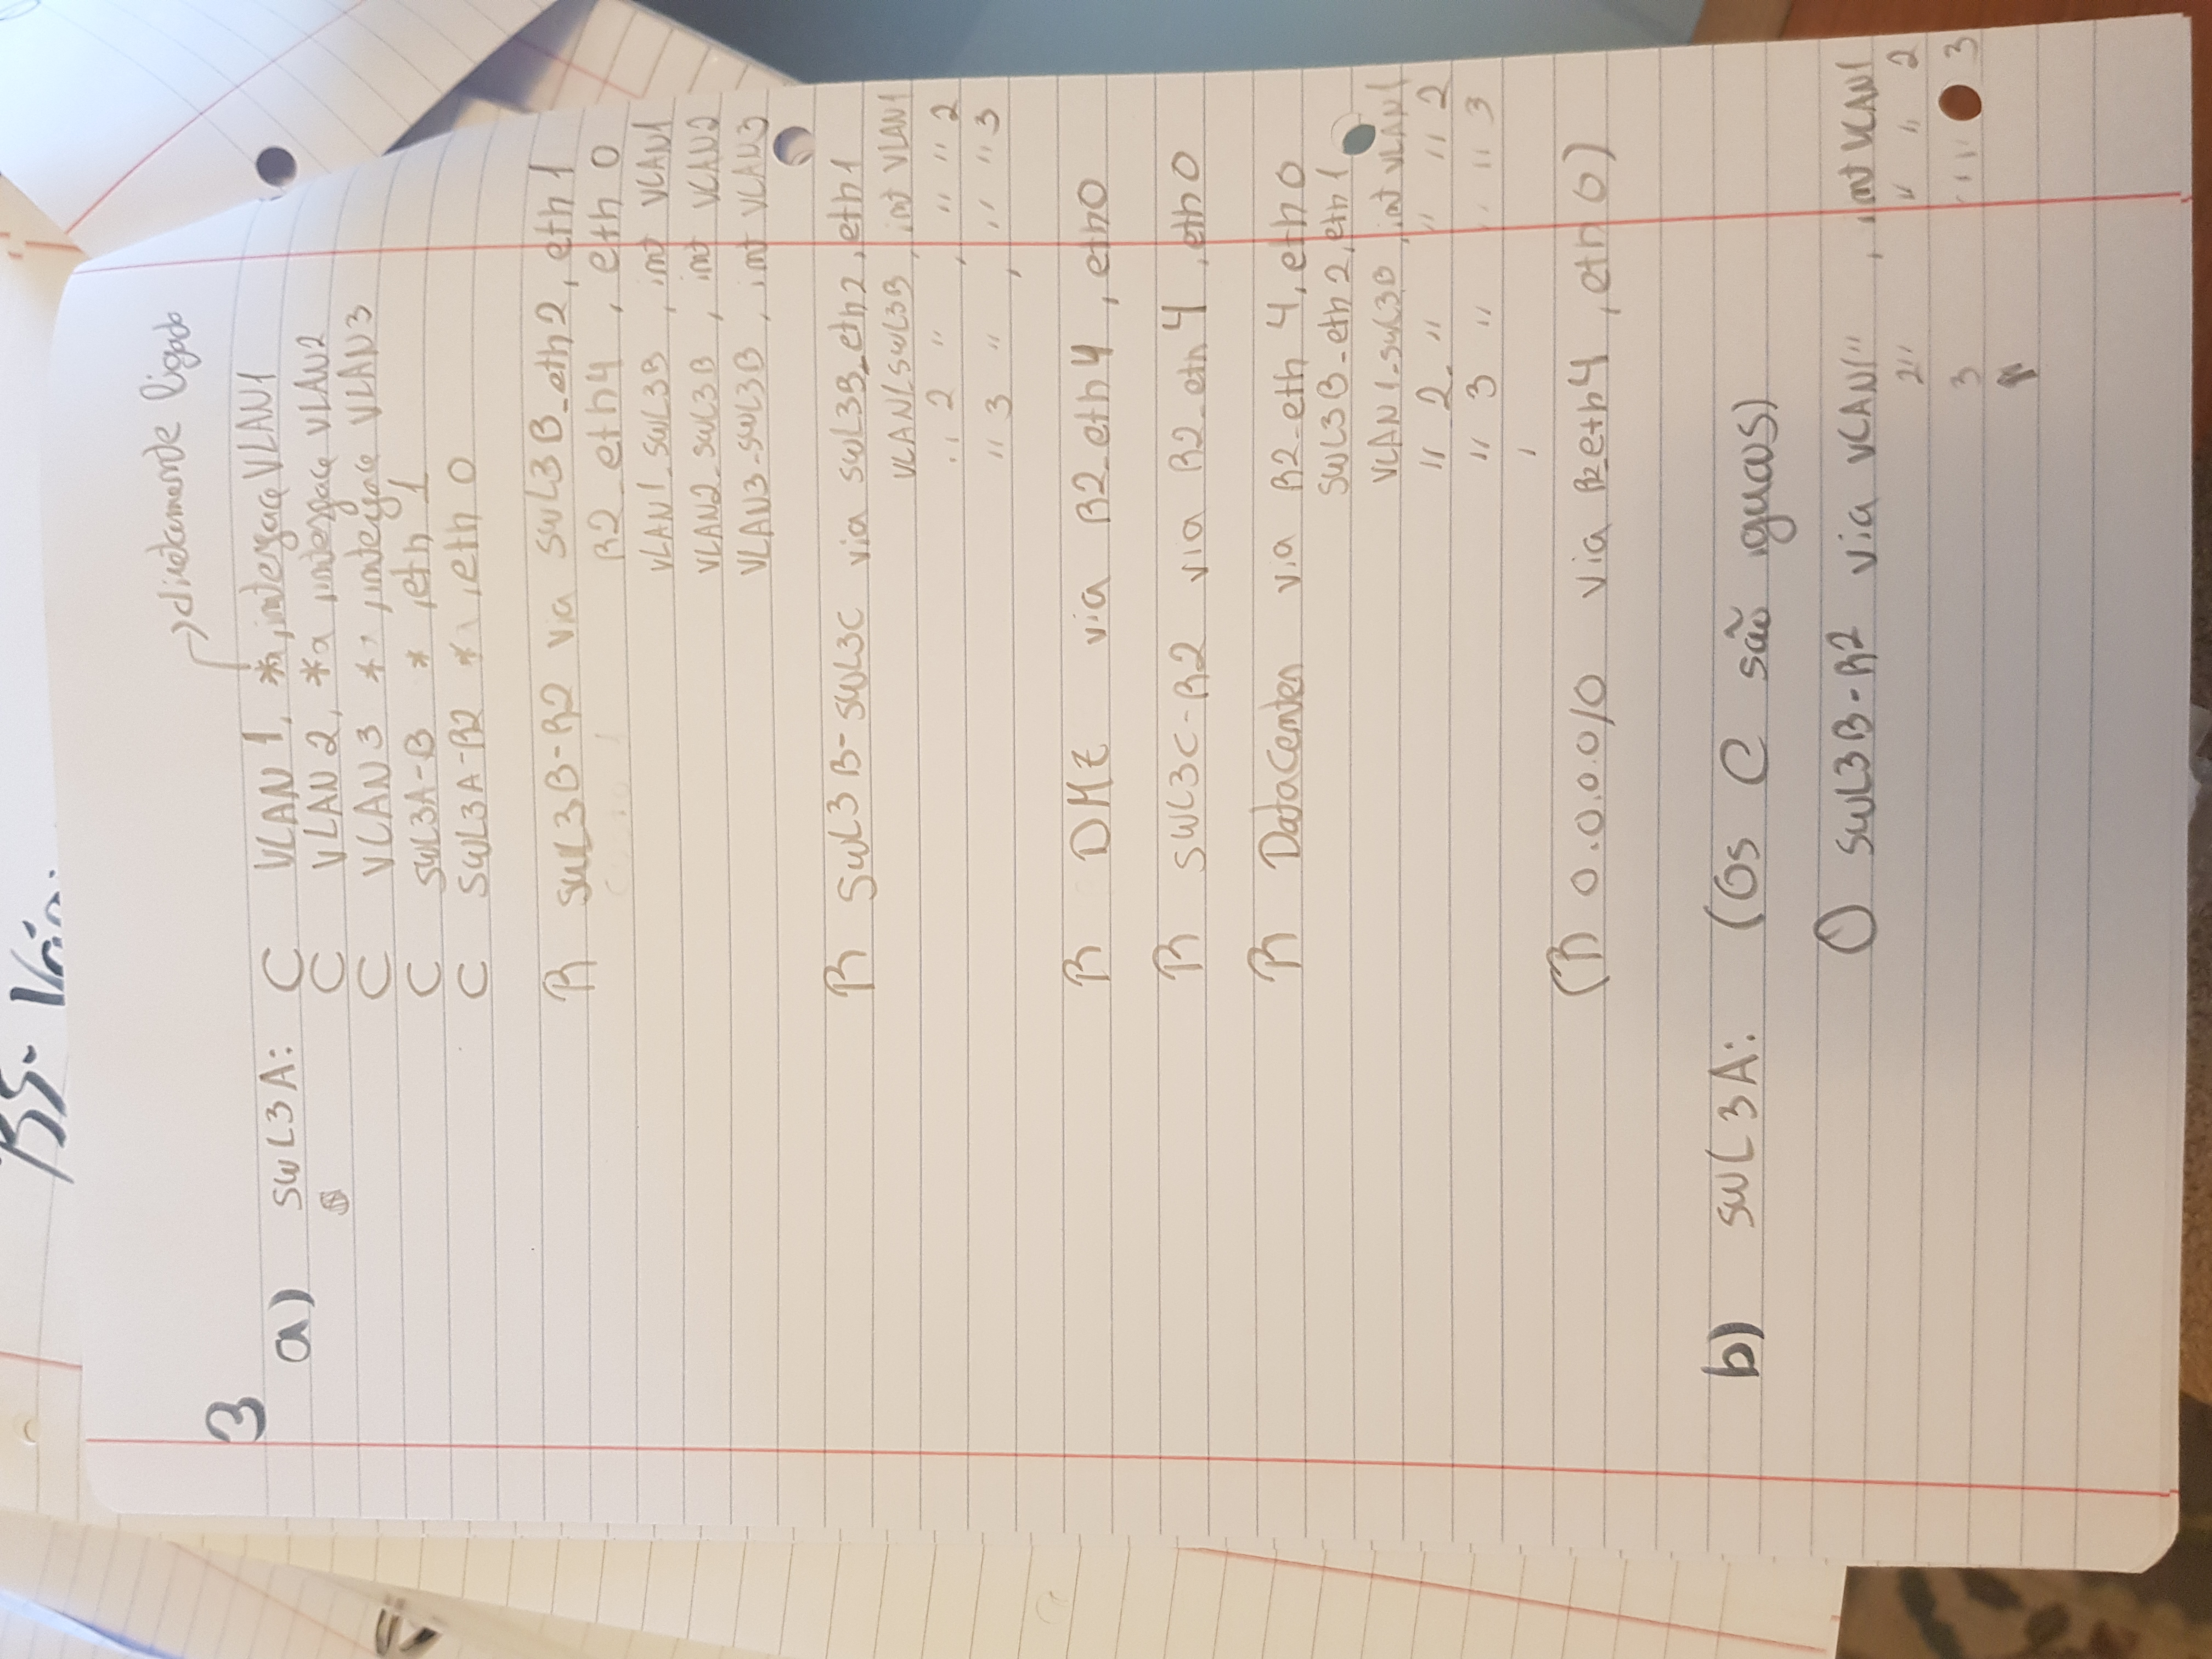 3
→ diretamente ligado
a) SWL3A: C VLAN 1, *, interface VLAN1
C VLAN 2, * , interface VLAN2
C VLAN3 * , interface VLAN3
C SWL3A-B * , eth 1
C SWL3A-R2 * , eth 0
R SWL3B-R2 via SWL3B_eth2, eth1
R2_eth4 , eth 0
VLAN1_SWL3B , int VLAN1
VLAN2_SWL3B , int VLAN2
VLAN3-SWL3B , int VLAN3
R SWL3B-SWL3C via SWL3B_eth2, eth1
VLAN1SWL3B , int VLAN1
" 2 " , " " 2
" 3 " , " " 3
R DMZ via R2_eth4 , eth0
R SWL3C-R2 via R2_eth4 , eth0
R DataCenter via R2_eth4, eth0
SWL3B-eth2, eth1
VLAN1-SWL3B , int VLAN1
" 2. " " " 2
" 3 " " " 3
(R 0.0.0.0/0 via R2eth4 , eth0)
b) SWL3A: (Os C são iguais)
O SWL3B-R2 via VLAN1" , int VLAN1
2" " " 2
3 " " 3